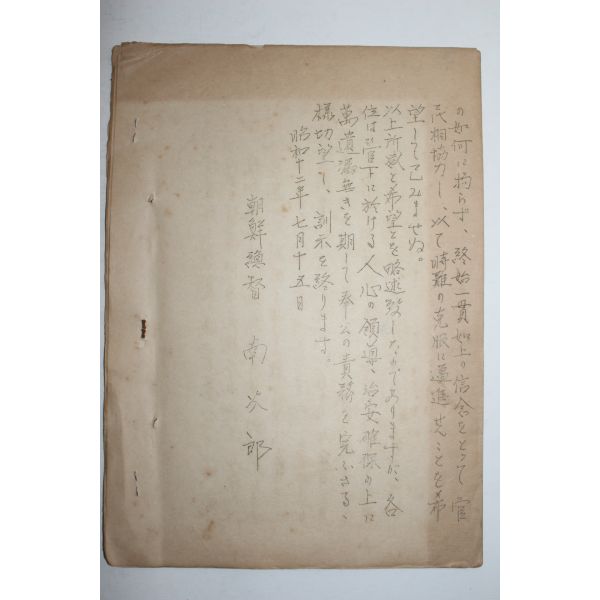 の如何に拘らず、終始一貫如上の信念をもつて官
民相協力し、以て時難の克服に邁進せんことを希
望して已みませぬ。
以上所感と希望とを略述致したのでありますが、各
位は管下に於ける人心の領導、治安確保の上に
萬遺漏無きを期して奉公の責務を完ふさるゝ
様切望し、訓示を終ります。
昭和十二年七月十五日
朝鮮總督 南次郎